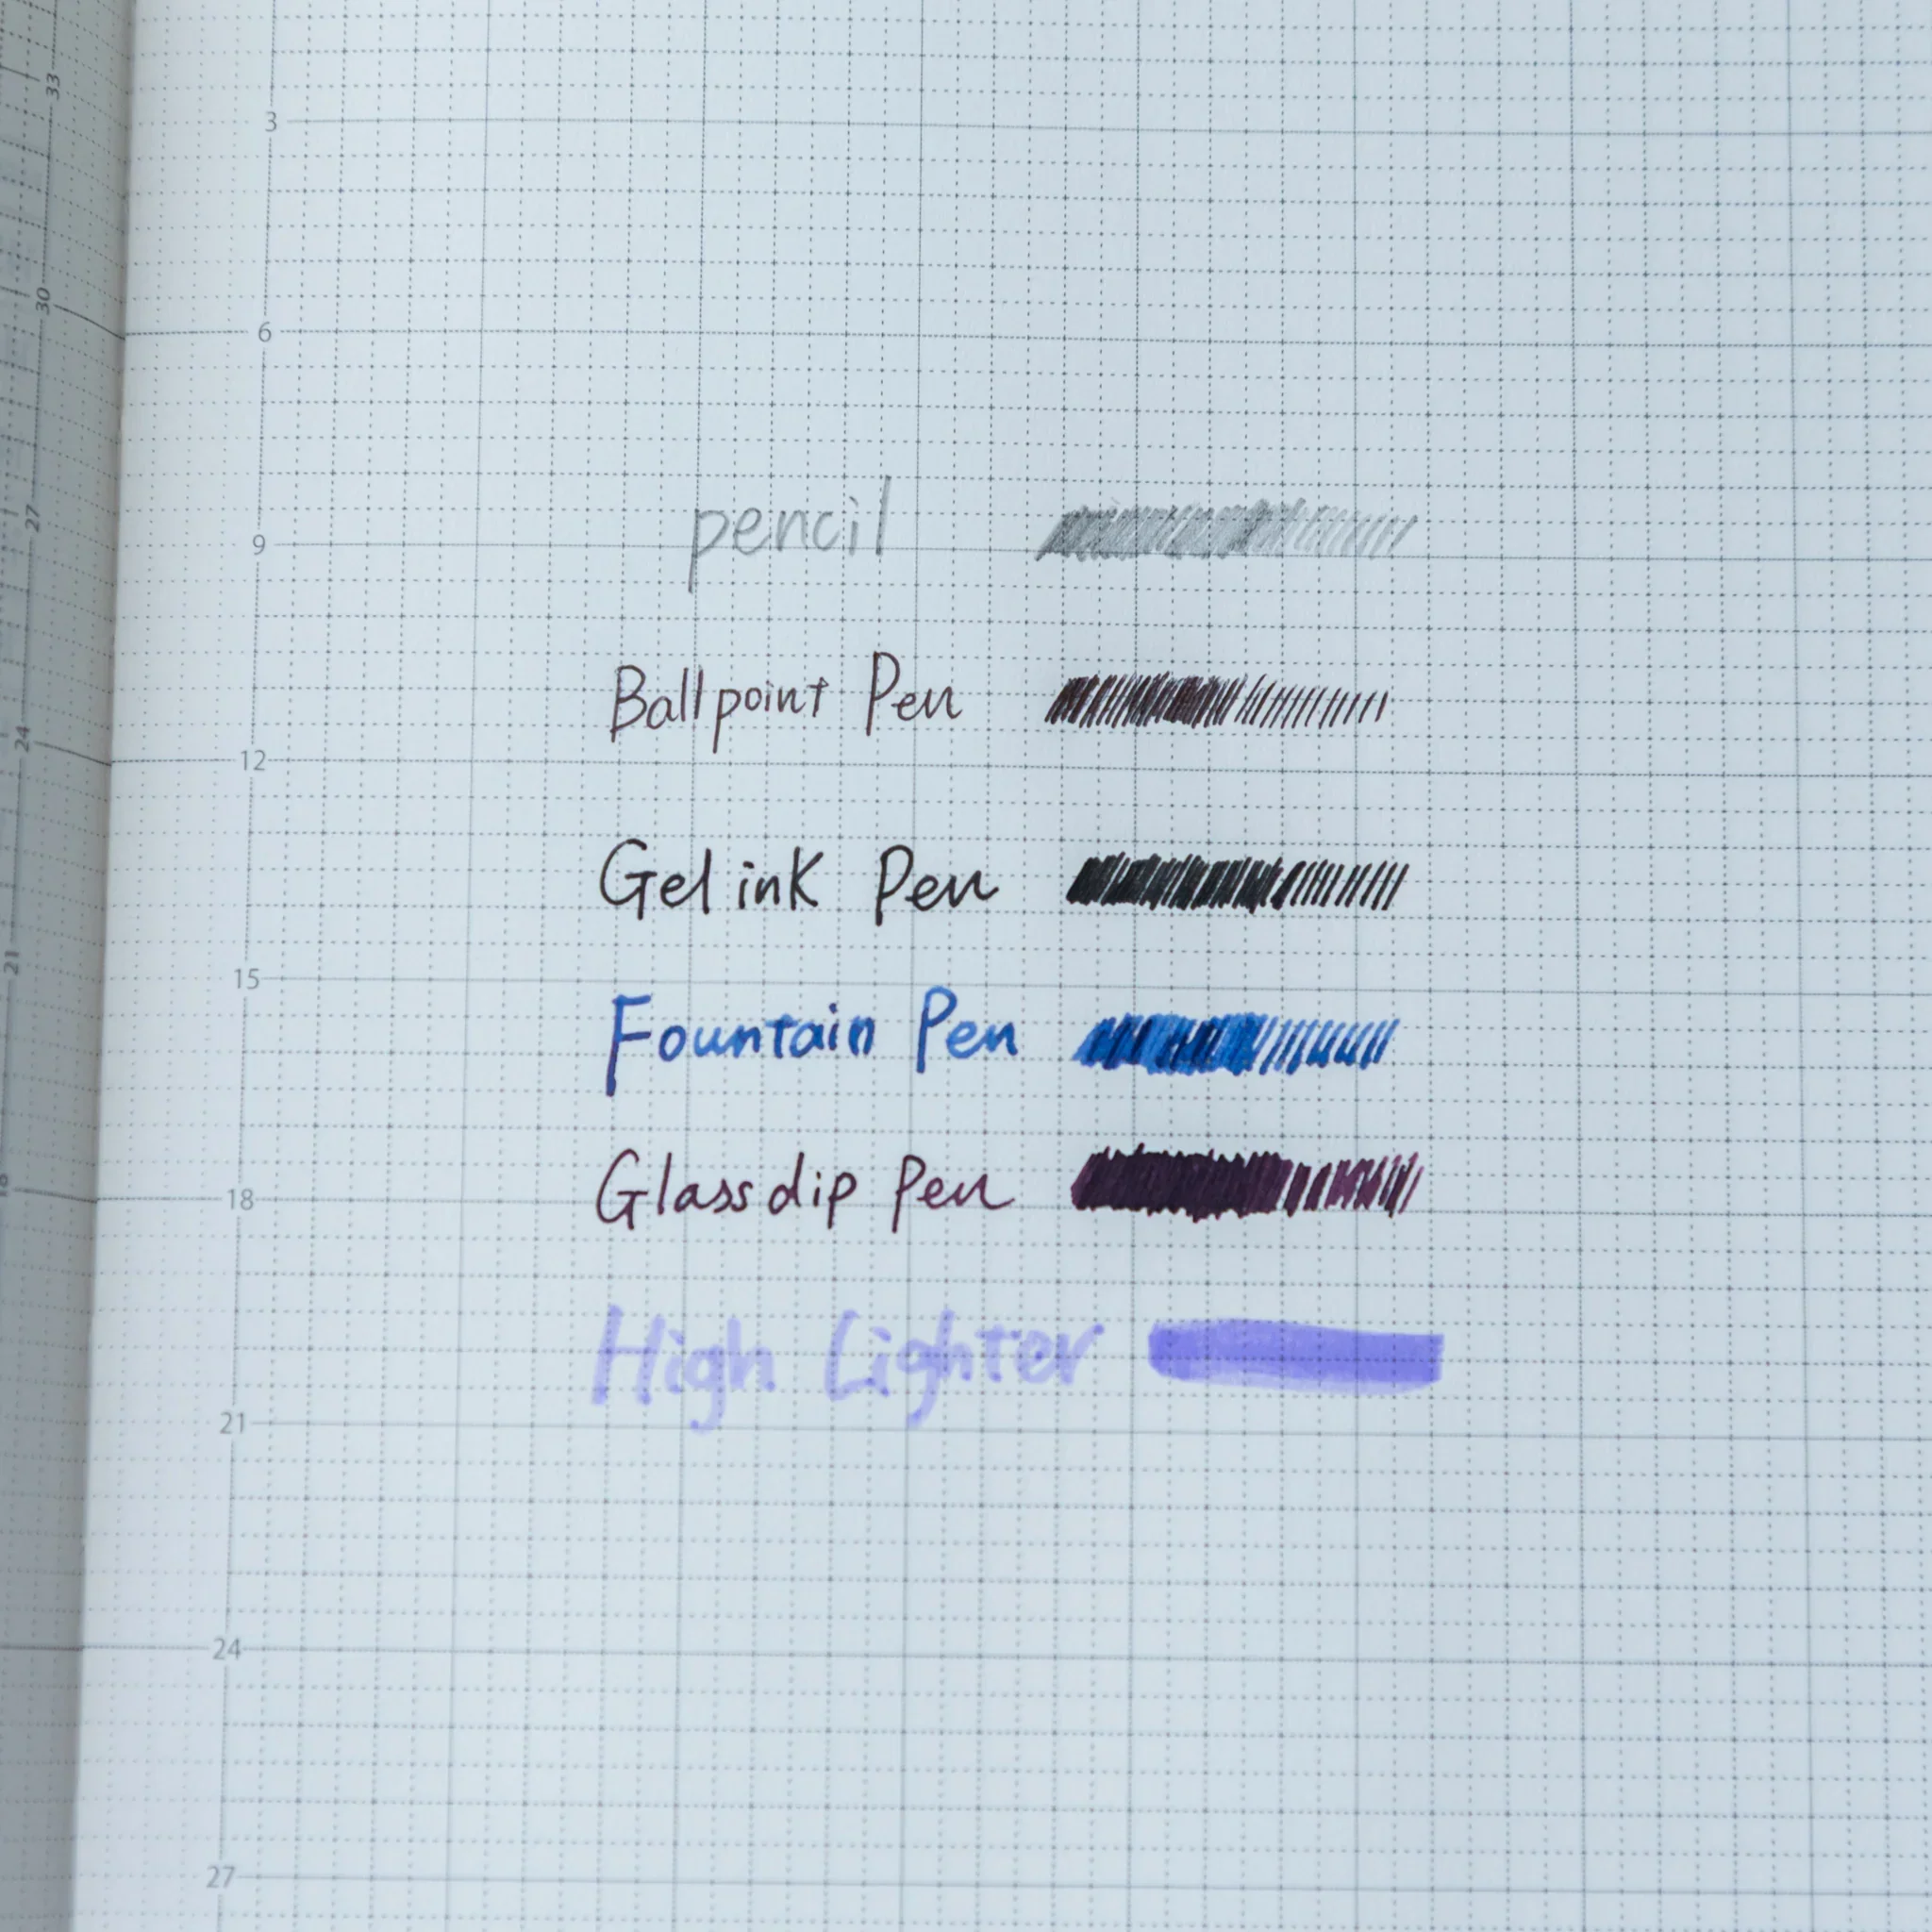 33
30
27
24
21
18
3
6
pencil
9
Ballpoint Pen
12
Gel ink Pen
15
Fountain Pen
Glass dip Pen
18
High Lighter
21
24
27